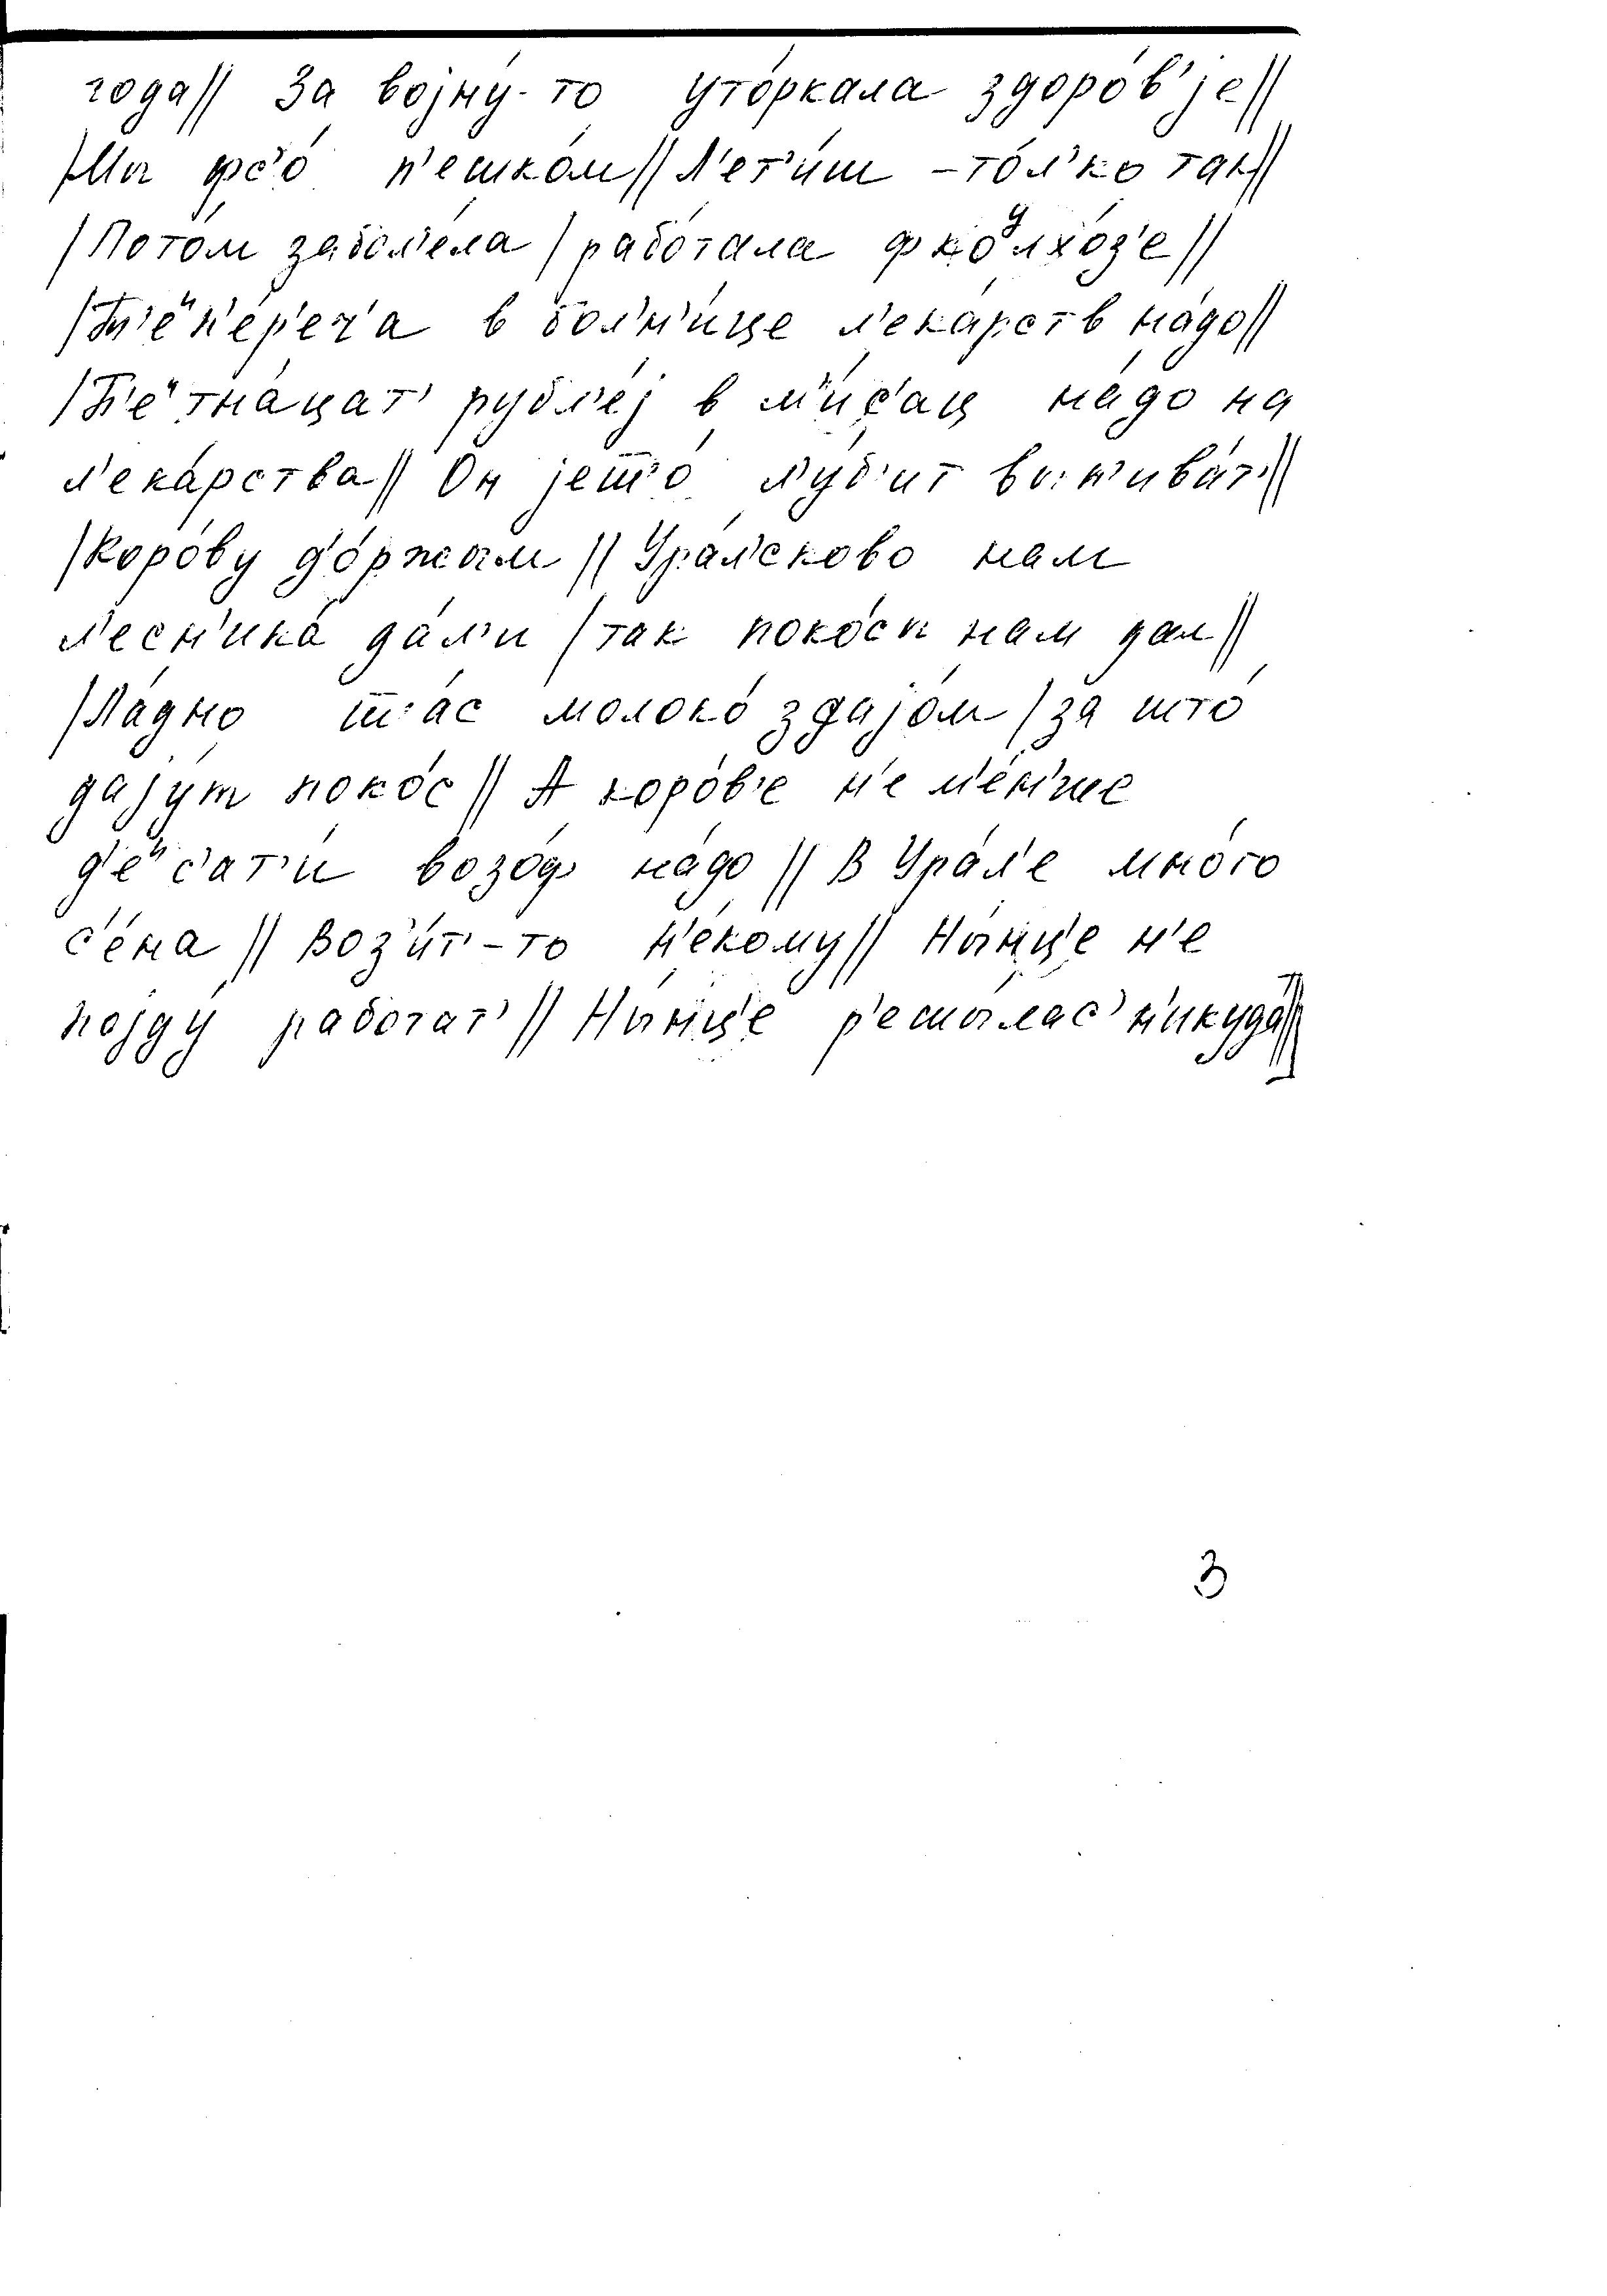 года// За војну́-то уто́ркала здоро́в'је//
/Мы фс'о́ п'ешко́м// Л'ет'и́ш -то́л'ко так//
/Пото́м забол'е́ла / рабо́тала ф коʸлхо́з'е//
/Т'еᶦп'е́р'еч'а в бол'н'и́це л'ека́рств на́до//
/П'еᶦтна́цат' рубл'е́ј в м'и́с'ац на́до на
л'ека́рства// Он јешо́ л'у́б'ит вып'ива́т'//
/Коро́ву д'о́ржым // Ура́л'сково нам
л'есн'ика́ да́л'и / так поко́сы нам дал//
/Ла́дно ш':ас молоко́ здајо́м / за што́
дају́т поко́с// А коро́в'е н'е м'е́н'ше
д'еᶦс'ат'и́ возо́ф на́до // В Ура́л'е мно́го
с'е́на // Воз'и́т'-то н'е́кому// Ны́нц'е н'е
појду́ работат'// Ны́нц'е р'ешы́лас' н'икуда́//
3